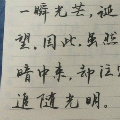 一瞬光芒，诞
望，因此，虽然
暗中来，却注
追随光明。